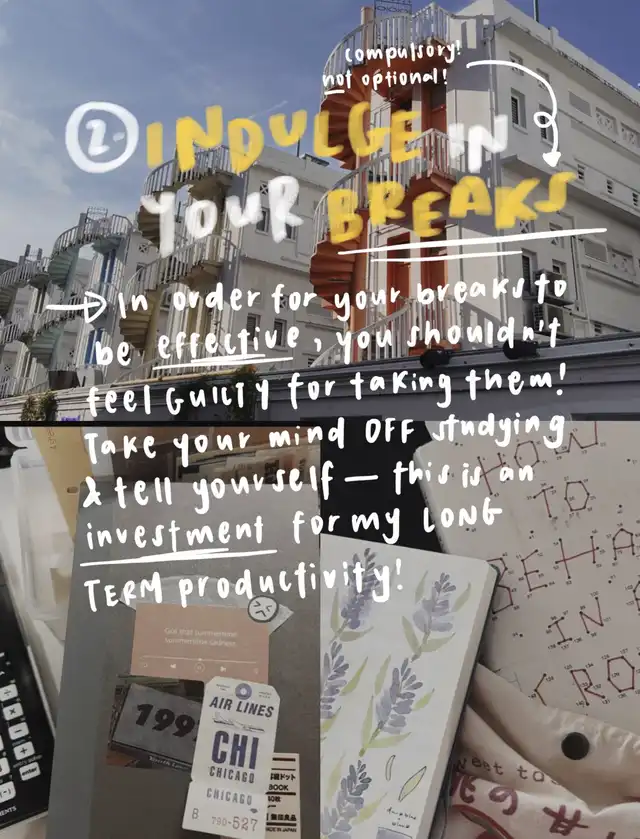 compulsory!
not optional!
2. INDULGE IN
YOUR BREAKS
In order for your breaks to
be effective, you shouldn't
feel GUILTY for taking them!
Take your mind OFF studying
& tell yourself — this is an
investment for my LONG
TERM productivity!
HOW
TO
BEHA
IN
CRO
Got that summertime
summertime sadness
199
AIR LINES
CHI
CHICAGO
CHICAGO
B 790-527
BOOK
MADE IN JAPAN
MENTS